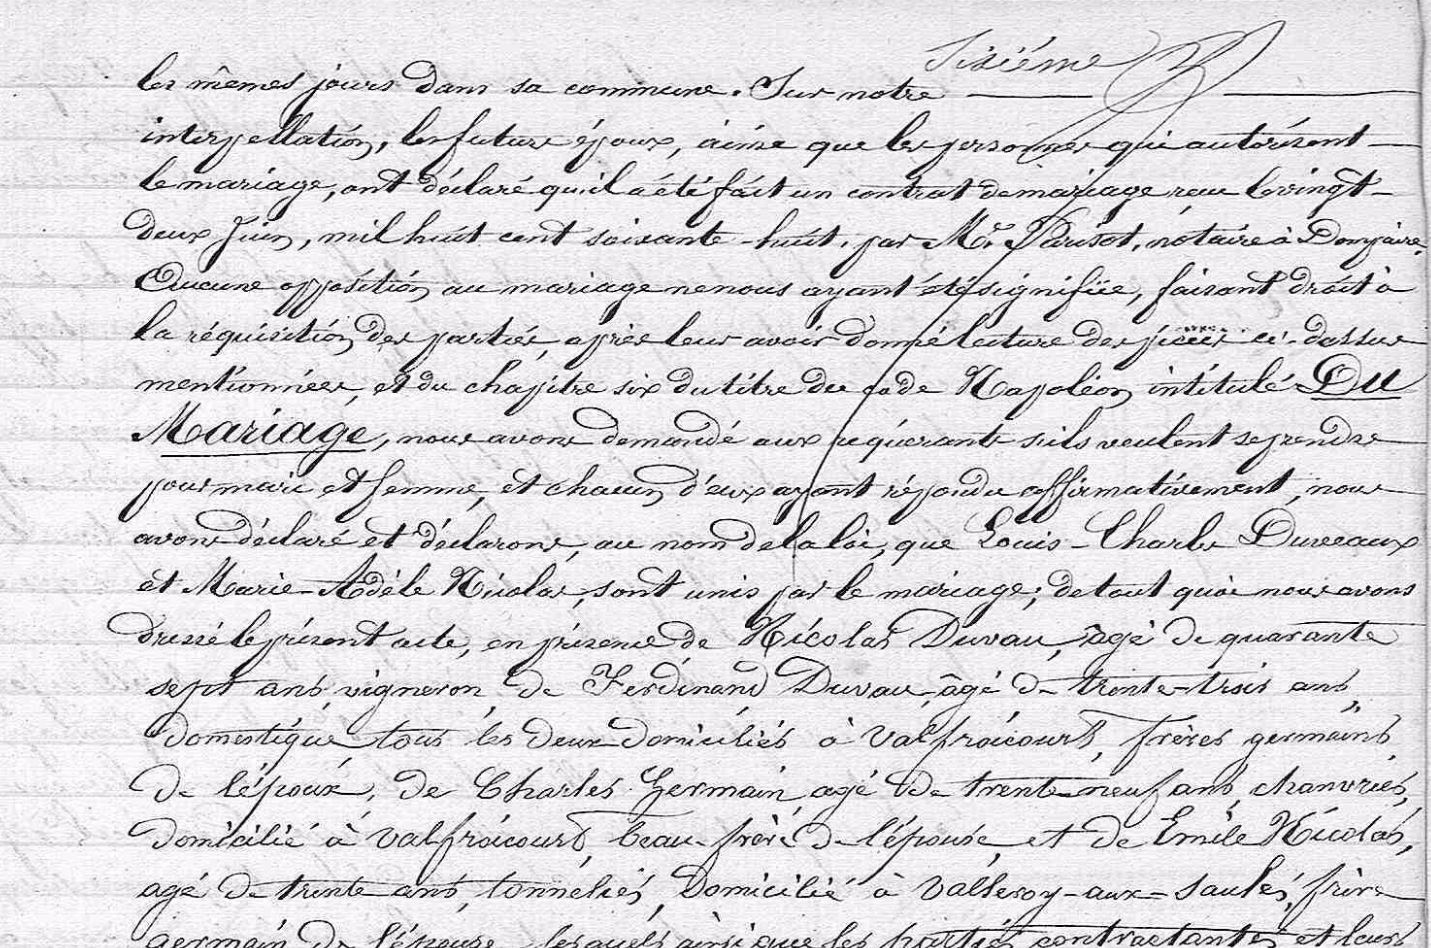 Sixiéme
les mêmes jours dans sa commune. Sur notre
interpellation, les futurs époux, ainsi que les personnes qui autorisent
le mariage, ont déclaré qu'il a été fait un contrat de mariage reçu le vingt-
deux Juin, mil huit cent soixante-huit, par Me. Parisot, notaire à Dompaire.
Aucune opposition au mariage ne nous ayant été signifiée, faisant droit à
la réquisition des parties, après leur avoir donné lecture des pièces ci-dessus
mentionnées, et du chapitre six du titre du code Napoléon intitulé Du
Mariage, nous avons demandé aux requérants s'ils veulent se prendre
pour mari et femme, et chacun d'eux ayant répondu affirmativement, nous
avons déclaré et déclarons, au nom de la loi, que Louis-Charles Duveaux
et Marie-Adéle Nicolas, sont unis par le mariage; de tout quoi nous avons
dressé le présent acte, en présence de Nicolas Duvau, âgé de quarante
sept ans, vigneron, de Ferdinand Duvau, âgé de trente-trois ans,
domestique, tous les deux domiciliés à Valfroicourt, frères germains
de l'époux, de Charles Germain, agé de trente-neuf ans, chanvrier,
domicilié à Valfroicourt, beau-frère de l'épouse, et de Emile Nicolas,
agé de trente ans, tonnelier, Domicilié à Valleroy-aux-Saules, frère
germain de l'épouse, lesquels ainsi que les parties contractantes et leurs